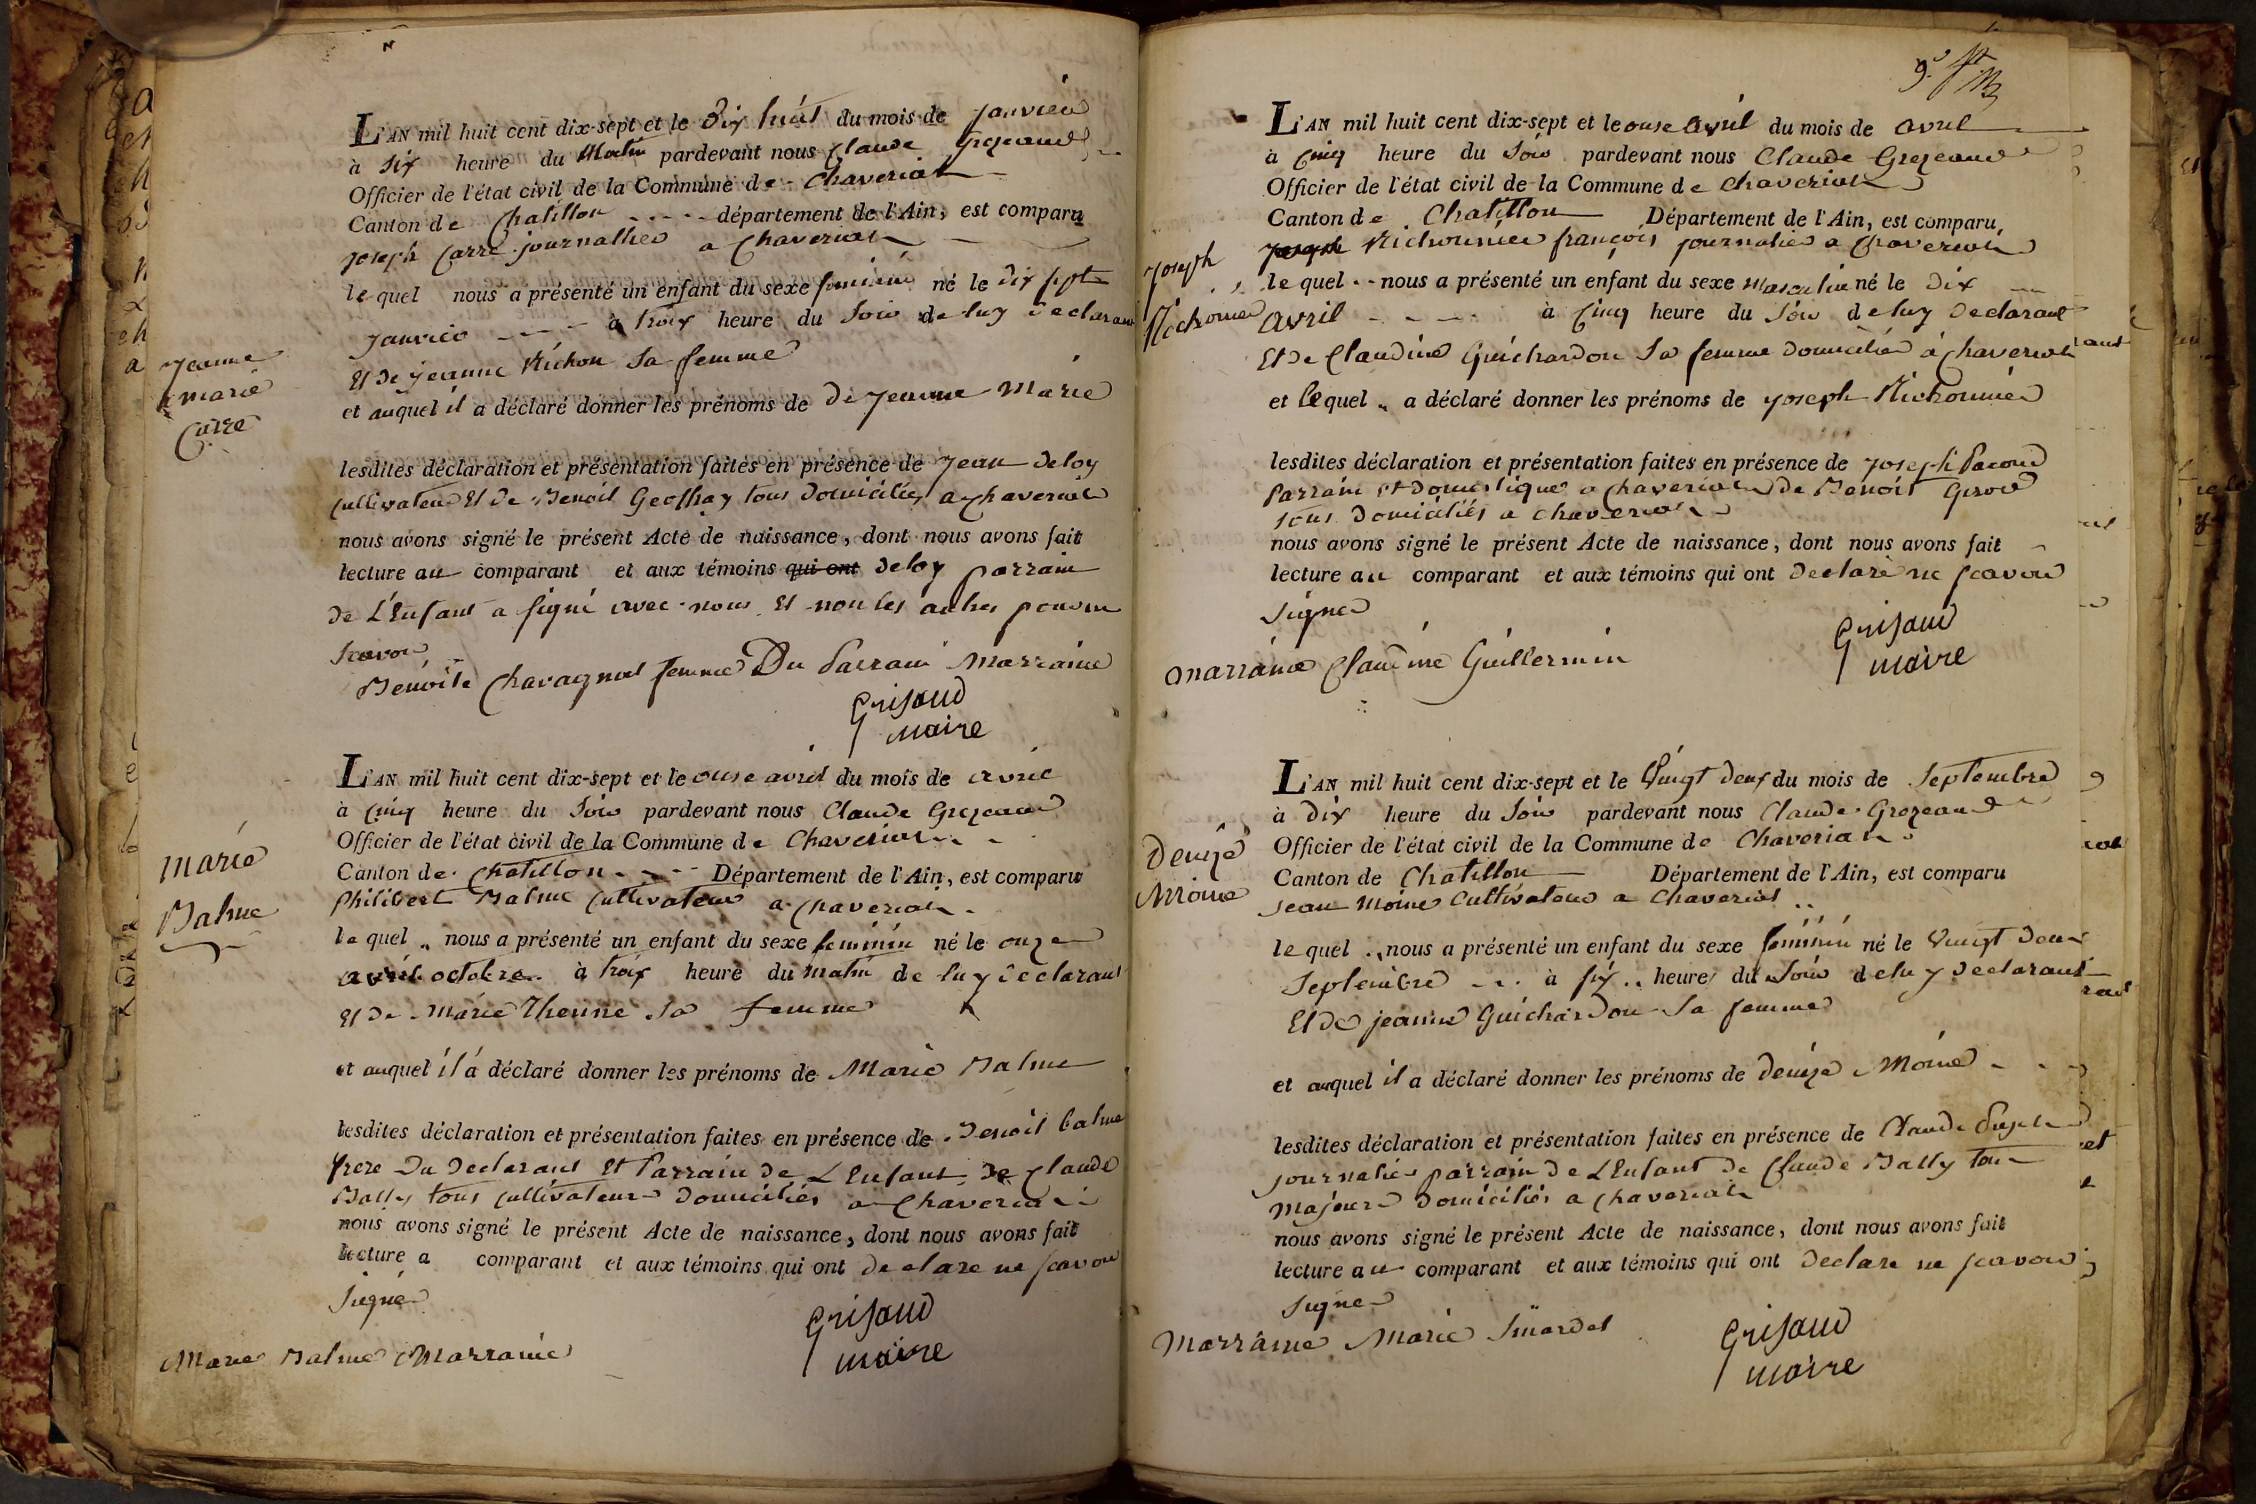 L'AN mil huit cent dix-sept et le Dix huit du mois de janvier
à six heure du Matin pardevant nous Claude Grezeaud
Officier de l'état civil de la Commune de Chaveriat
Canton de Chatillon département de l'Ain, est comparu
joseph Carre journallier a Chaveriat
lequel nous a présenté un enfant du sexe feminin né le dix sept
janvier à trois heure du Soir de luy declarant
Et De jeanne Michon Sa femme
et auquel il a déclaré donner les prénoms de De jeanne Marie
lesdites déclaration et présentation faites en présence de jean deloy
Cultivateur Et De Benoit Geoffray tous domiciliés a Chaveriat
nous avons signé le présent Acte de naissance, dont nous avons fait
lecture au comparant et aux témoins qui ont deloy parrain
de L'Enfant a signé avec nous Et non les autres pour ne
Scavoir
Benoite Chavagnat femme Du Parrain Marraine
Grisaud
maire
jeanne
marie
Carre
L'AN mil huit cent dix-sept et le onse avril du mois de avril
à Cinq heure du Soir pardevant nous Claude Grezeaud
Officier de l'état civil de la Commune de Chaveriat
Canton de Chatillon Département de l'Ain, est comparu
Philibert Balme Cultivateur a Chaveriat
lequel nous a présenté un enfant du sexe feminin né le onze
avril octobre à trois heure du matin de luy declarant
Et De Marie Thenne Sa femme
et auquel il a déclaré donner les prénoms de Marie Balme
lesdites déclaration et présentation faites en présence de Benoit balme
frere Du Declarant Et Parrain de L'Enfant De Claude
Bally tous cultivateurs domiciliés a Chaveriat
nous avons signé le présent Acte de naissance, dont nous avons fait
lecture a comparant et aux témoins qui ont declare ne scavoir
Signé
Marie Balme Marraine
Grisaud
maire
Marie
Balme
L'AN mil huit cent dix-sept et le onse avril du mois de avril
à Cinq heure du Soir pardevant nous Claude Grezeaud
Officier de l'état civil de la Commune de Chaveriat
Canton de Chatillon Département de l'Ain, est comparu
joseph Michonnier françois journalier a Chaveriat
lequel nous a présenté un enfant du sexe Masculin né le Dix
avril à Cinq heure du Soir de luy Declarant
Et De Claudine Guichardon Sa femme domicilié à Chaveriat
et lequel a déclaré donner les prénoms de joseph Michonnier
lesdites déclaration et présentation faites en présence de joseph Pacoud
Parrain et domestique a Chaveriat De Benoit
tous Domiciliés a Chaveriat
nous avons signé le présent Acte de naissance, dont nous avons fait
lecture au comparant et aux témoins qui ont declaré ne scavoir
Signer
Marraine Claudine Guillermin
Grisaud
maire
joseph
L'AN mil huit cent dix-sept et le Vingt deux du mois de Septembre
à Dix heure du Soir pardevant nous Claude Grezeaud
Officier de l'état civil de la Commune de Chaveriat
Canton de Chatillon Département de l'Ain, est comparu
jean Moine Cultivateur a Chaveriat
lequel nous a présenté un enfant du sexe feminin né le Vingt deux
Septembre à six heure du Soir de luy declarant
Et De jeanne Guichardon Sa femme
et auquel il a déclaré donner les prénoms de Denize Moine
lesdites déclaration et présentation faites en présence de Claude
journalier parrain de L'Enfant De Claude Bally tous
Majeurs Domiciliés a Chaveriat
nous avons signé le présent Acte de naissance, dont nous avons fait
lecture au comparant et aux témoins qui ont declare ne scavoir
Signer
Marraine Marie
Grisaud
maire
Denize
Moine